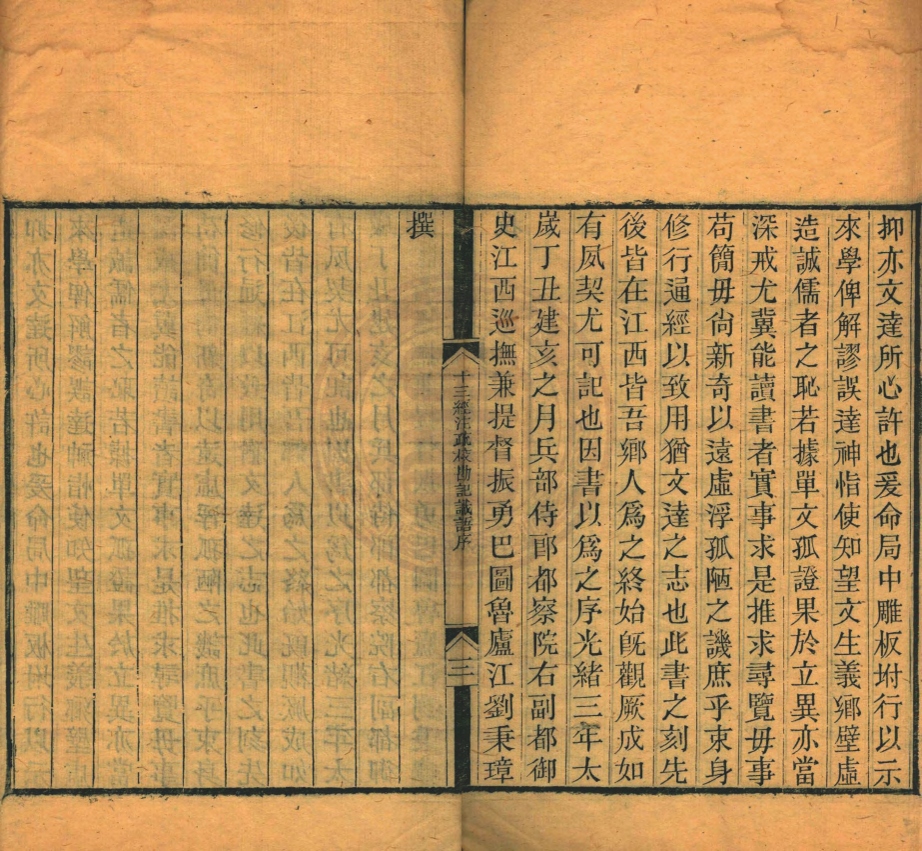 抑亦文達所心許也爰命局中雕板坿行以示
來學俾解謬誤達神恉使知望文生義鄉壁虛
造誠儒者之恥若據單文孤證果於立異亦當
深戒尤冀能讀書者實事求是推求尋覽毋事
苟簡毋尙新奇以遠虛浮孤陋之譏庶乎束身
修行通經以致用猶文達之志也此書之刻先
後皆在江西皆吾鄉人爲之終始旣觀厥成如
有夙契尤可記也因書以爲之序光緒三年太
歲丁丑建亥之月兵部侍郎都察院右副都御
史江西巡撫兼提督振勇巴圖魯廬江劉秉璋
十三經注疏校勘記識語序
三
撰